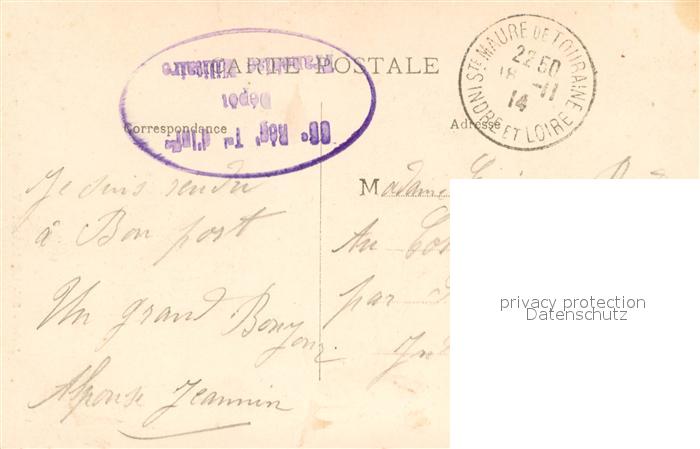 CARTE POSTALE
66e Régt Tal d'Infie
Dépôt
Militaire
STE MAURE DE TOURAINE
22 50
18 -11
14
INDRE ET LOIRE
Correspondance
Adresse
Je suis rendu
à Bon port
Un grand Bonjour
Alphonse Jeannin
Madame
Au
par
privacy protection
Datenschutz